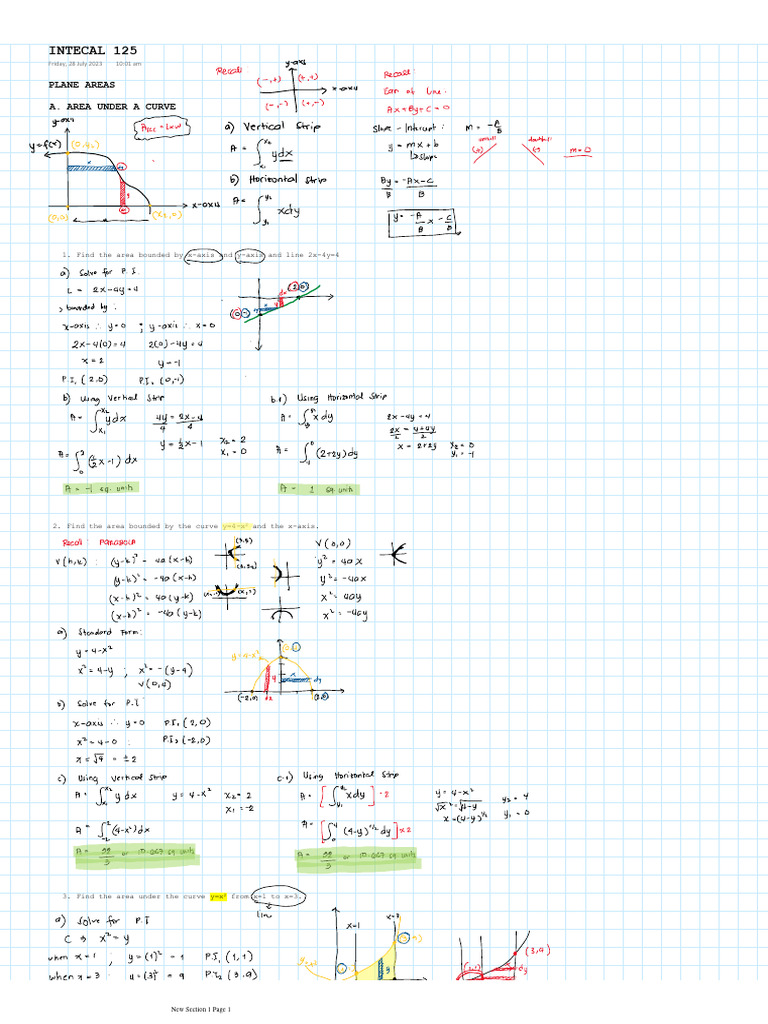 INTECAL 125
Friday, 28 July 2023 10:01 am
PLANE AREAS
A. AREA UNDER A CURVE
y-axis
Area = L×W
y=f(x)
(0,y₂)
x
y
x-axis
(0,0)
(x₂,0)
Recall
y-axis
x-axis
(-,+) (+,+)
(-,-) (+,-)
a) Vertical Strip
A = ∫ₓ₁^x₂ ydx
b) Horizontal Strip
A = ∫ᵧ₁^y₂ xdy
Recall:
Eqn of Line:
Ax+By+C=0
Slope - Intercept: m = -A/B
y = mx + b
↳slope
uphill
(+)
downhill
(-)
m=0
By/B = -Ax-C/B
y = -A/B x - C/B
1. Find the area bounded by x-axis and y-axis and line 2x-4y=4
a) Solve for P.I.
L = 2x-4y=4
> bounded by:
x-axis ∴ y=0 ; y-axis ∴ x=0
2x-4(0)=4 2(0)-4y=4
x=2 y=-1
P.I₁ (2,0) P.I₂ (0,-1)
(2,0)
(0,-1)
b) Using Vertical Strip
A = ∫ₓ₁^x₂ ydx
4y/4 = 2x-4/4
y = ½x-1
x₂=2
x₁=0
A = ∫₀² (½x-1)dx
A = -1 sq. units
b.1) Using Horizontal Strip
A = ∫ᵧ₁^y₂ xdy
2x-4y=4
2x/2 = 4+4y/2
x = 2+2y
y₂=0
y₁=-1
A = ∫₋₁⁰ (2+2y)dy
A = 1 sq. units
2. Find the area bounded by the curve y=4-x² and the x-axis.
Recall: PARABOLA
V(h,k): (y-k)² = 4a(x-h)
(y-k)² = -4a(x-h)
(x-h)² = 4a(y-k)
(x-h)² = -4a(y-k)
V(0,0)
y² = 4ax
y² = -4ax
x² = 4ay
x² = -4ay
a) Standard Form:
y = 4-x²
x² = 4-y ; x² = -(y-4)
V(0,4)
y=4-x²
(0,4)
y
x
dy
(-2,0)
dx
(2,0)
b) Solve for P.I:
x-axis ∴ y=0 P.I₁ (2,0)
x² = 4-0 P.I₂ (-2,0)
x = √4 = ±2
c) Using Vertical Strip
A = ∫ₓ₁^x₂ ydx y = 4-x² x₂=2
x₁=-2
A = ∫₋₂² (4-x²)dx
A = 32/3 or 10.667 sq. units
c.1) Using Horizontal Strip
A = [∫ᵧ₁^y₂ xdy] · 2
y = 4-x²
√x² = √4-y
x = (4-y)^½
y₂=4
y₁=0
A = [∫₀⁴ (4-y)^½ dy] x 2
A = 32/3 or 10.667 sq. units
3. Find the area under the curve y=x² from x=1 to x=3.
line
a) Solve for P.I
C ⇒ x² = y
when x=1 ; y=(1)²=1 P.I₁ (1,1)
when x=3 ; y=(3)²=9 P.I₂ (3,9)
x=1
x=3
y=x²
y
(3,9)
dy
New Section 1 Page 1